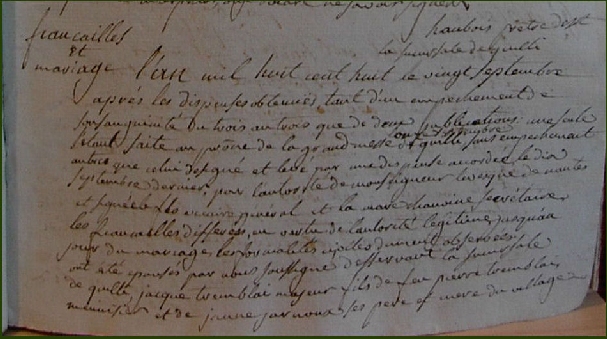 haubois prêtre desst
la succursale de quilli
fiancailles
et
mariage l'an mil huit cent huit le vingt septembre
après les dispenses obtenues, tant d'un empechement de
consanguinité du trois au trois que de deux publications: une seule
étant faite au prône de la grand messe de quilli sans empechement
onze septembre
autre que celui designé et levé par une dispense accordée le dix
septembre dernier, par l'autorité de monseigneur levesque de nantes
et signée vicaire général et la mare chanoine secrétaire
les fiancailles differées, en vertu de l'autorité legitime, jusquau
jour du mariage, les formalités civiles dument observées
ont été epousés par nous soussigné desservant la succursale
de quilli, jacque tremblai majeur fils de feu pierre tremblai
menuisier et de jeanne jarnoux ses pere et mere du village